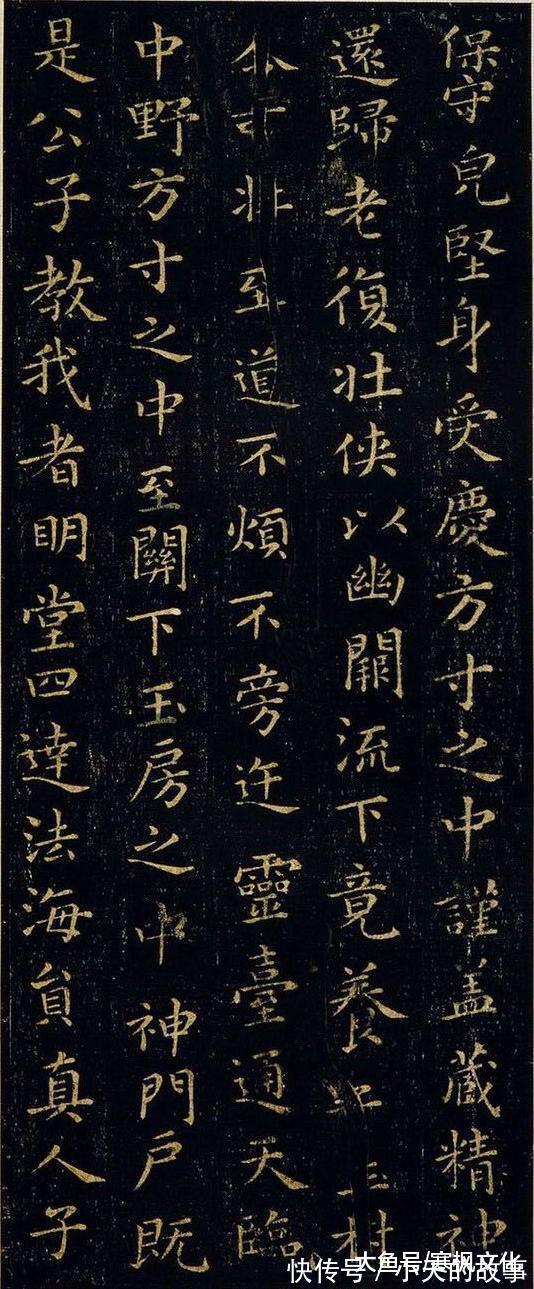 保守皃堅身受慶方寸之中謹盖藏精神
還歸老復壯俠以幽闕流下竟養
至道不煩不旁迕靈臺通天臨
中野方寸之中至關下玉房之中神門戶既
是公子教我者眀堂四達法海員真人子
大鱼号/寒枫文化
快传号/小夭的故事